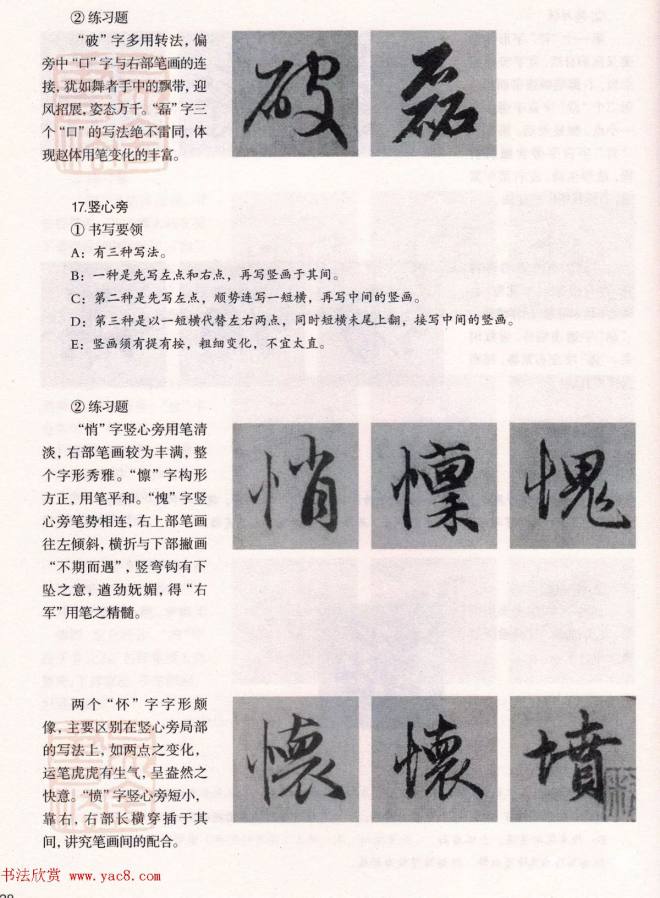 ② 练习题
“破”字多用转法，偏
旁中“口”字与右部笔画的连
接，犹如舞者手中的飘带，迎
风招展，姿态万千。“磊”字三
个“口”的写法绝不雷同，体
现赵体用笔变化的丰富。
破 磊
17.竖心旁
① 书写要领
A：有三种写法。
B：一种是先写左点和右点，再写竖画于其间。
C：第二种是先写左点，顺势连写一短横，再写中间的竖画。
D：第三种是以一短横代替左右两点，同时短横末尾上翻，接写中间的竖画。
E：竖画须有提有按，粗细变化，不宜太直。
② 练习题
“悄”字竖心旁用笔清
淡，右部笔画较为丰满，整
个字形秀雅。“懔”字构形
方正，用笔平和。“愧”字竖
心旁笔势相连，右上部笔画
往左倾斜，横折与下部撇画
“不期而遇”，竖弯钩有下
坠之意，遒劲妩媚，得“右
军”用笔之精髓。
悄 懔 愧
两个“怀”字字形颇
像，主要区别在竖心旁局部
的写法上，如两点之变化，
运笔虎虎有生气，呈盎然之
快意。“愤”字竖心旁短小，
靠右，右部长横穿插于其
间，讲究笔画间的配合。
懷 懷 憤
书法欣赏 www.yac8.com